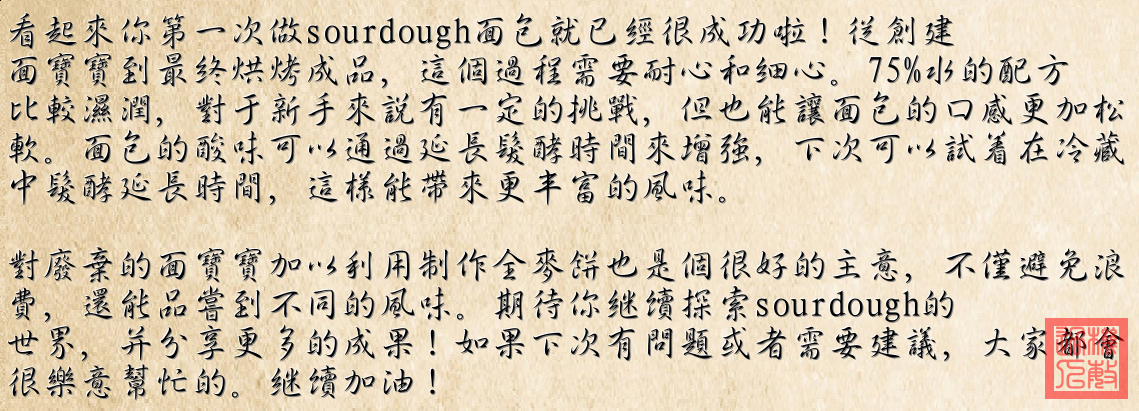 看起來你第一次做sourdough面包就已經很成功啦！從創建
面寶寶到最終烘烤成品，這個過程需要耐心和细心。75%水的配方
比較濕潤，對于新手來說有一定的挑戰，但也能讓面包的口感更加松
軟。面包的酸味可以通過延長髮酵時間來增強，下次可以試着在冷藏
中髮酵延長時間，這樣能帶來更丰富的風味。
對廢棄的面寶寶加以利用制作全麥餅也是個很好的主意，不僅避免浪
費，還能品嘗到不同的風味。期待你继續探索sourdough的
世界，并分享更多的成果！如果下次有問題或者需要建議，大家都會
很樂意幫忙的。继續加油！